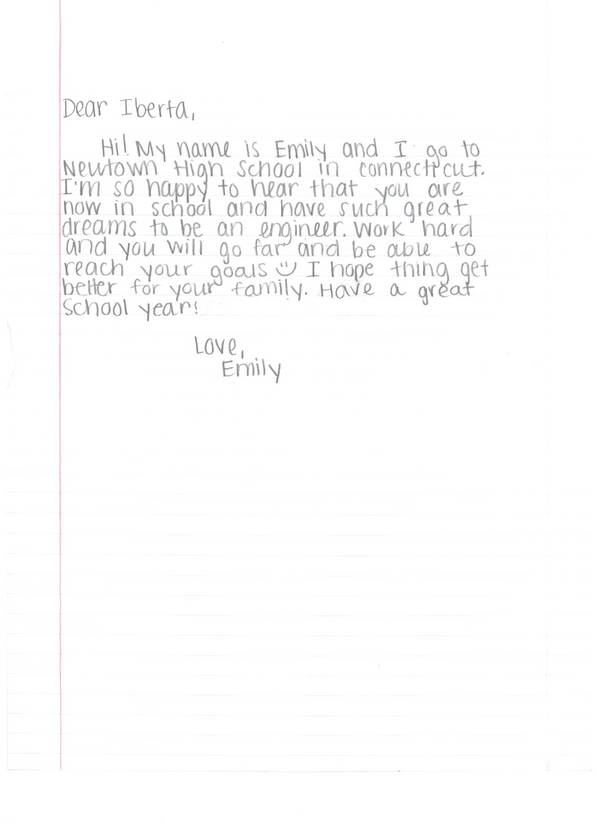 Dear Iberta,
Hi! My name is Emily and I go to
Newtown High School in connecticut.
I'm so happy to hear that you are
now in school and have such great
dreams to be an engineer. Work hard
and you will go far and be able to
reach your goals ☺ I hope thing get
better for your family. Have a great
School year!
Love,
Emily